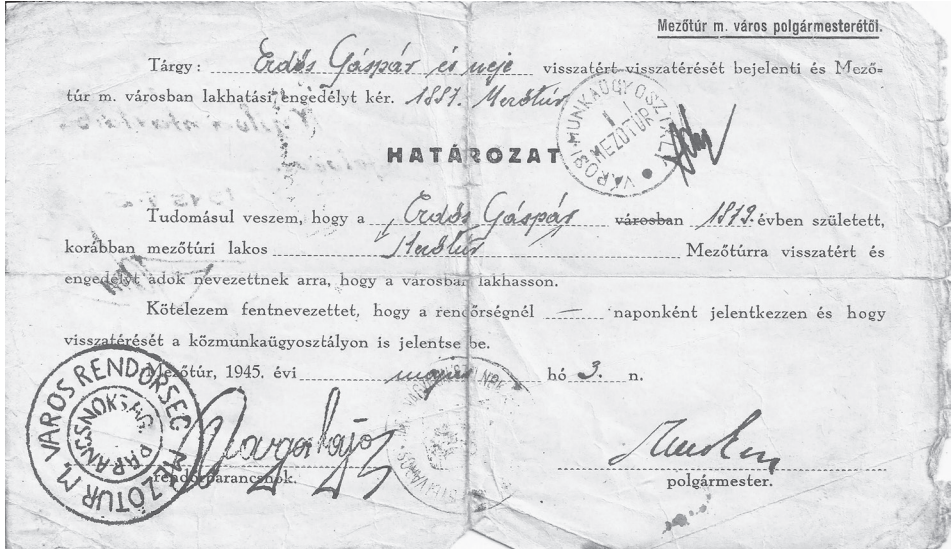 Mezőtúr m. város polgármesterétől.
Tárgy: Erdős Gáspár és neje visszatért visszatérését bejelenti és Mező=
túr m. városban lakhatási engedélyt kér. 1887. Mezőtúr
VÁROSI MUNKAÜGYOSZTÁLY MEZŐTÚR
HATÁROZAT
Tudomásul veszem, hogy a Erdős Gáspár városban 1879. évben született,
korábban mezőtúri lakos Mezőtúr Mezőtúrra visszatért és
engedélyt adok nevezettnek arra, hogy a városban lakhasson.
Kötelezem fentnevezettet, hogy a rendőrségnél — naponként jelentkezzen és hogy
visszatérését a közmunkaügyosztályon is jelentse be.
Mezőtúr, 1945. évi hó 3. n.
MEZŐTÚR M. VÁROS RENDŐRSÉG PARANCSNOKSÁG
Varga Lajos
rendőrparancsnok.
polgármester.